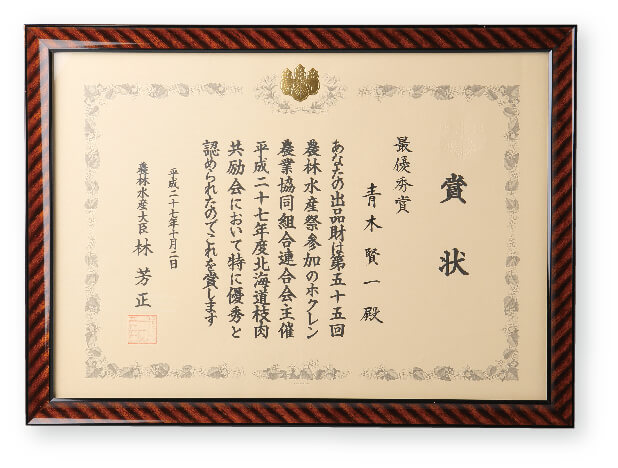 賞状
最優秀賞
青木賢一殿
あなたの出品財は第五十五回
農林水産祭参加のホクレン
農業協同組合連合会主催
平成二十七年度北海道枝肉
共励会において特に優秀と
認められたのでこれを賞します
平成二十七年十月二日
農林水産大臣 林芳正